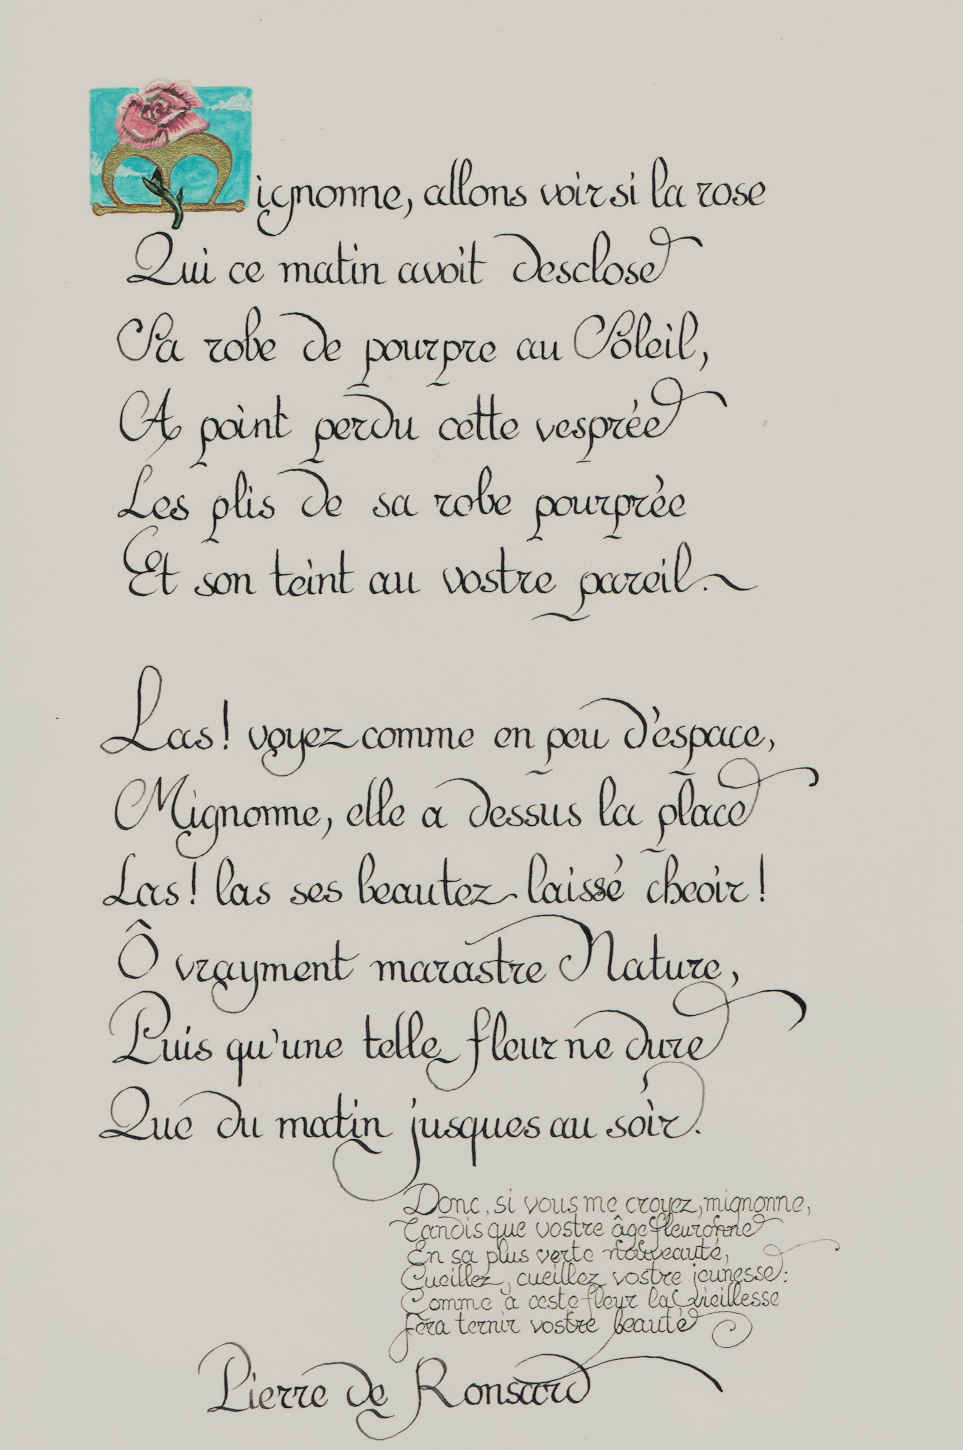 Mignonne, allons voir si la rose
Qui ce matin avoit desclose
Sa robe de pourpre au Soleil,
A point perdu cette vesprée
Les plis de sa robe pourprée
Et son teint au vostre pareil.
Las! voyez comme en peu d'espace,
Mignonne, elle a dessus la place
Las! las ses beautez laissé cheoir!
Ô vrayment marastre Nature,
Puis qu'une telle fleur ne dure
Que du matin jusques au soir.
Donc, si vous me croyez, mignonne,
Tandis que vostre âge fleuronne
En sa plus verte nouveauté,
Cueillez, cueillez vostre jeunesse:
Comme à ceste fleur la vieillesse
Fera ternir vostre beauté
Pierre de Ronsard